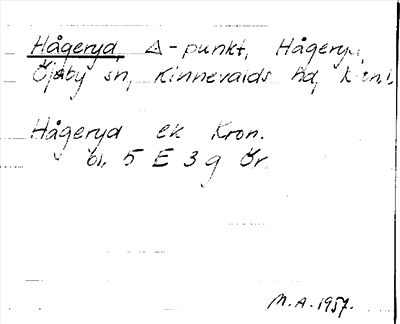 Hågeryd △-punkt, Hågeryd,
Öjaby sn, Kinnevalds hd,
Hågeryd ek Kron.
bl. 5 E 3 g Ör
M.A. 1957.